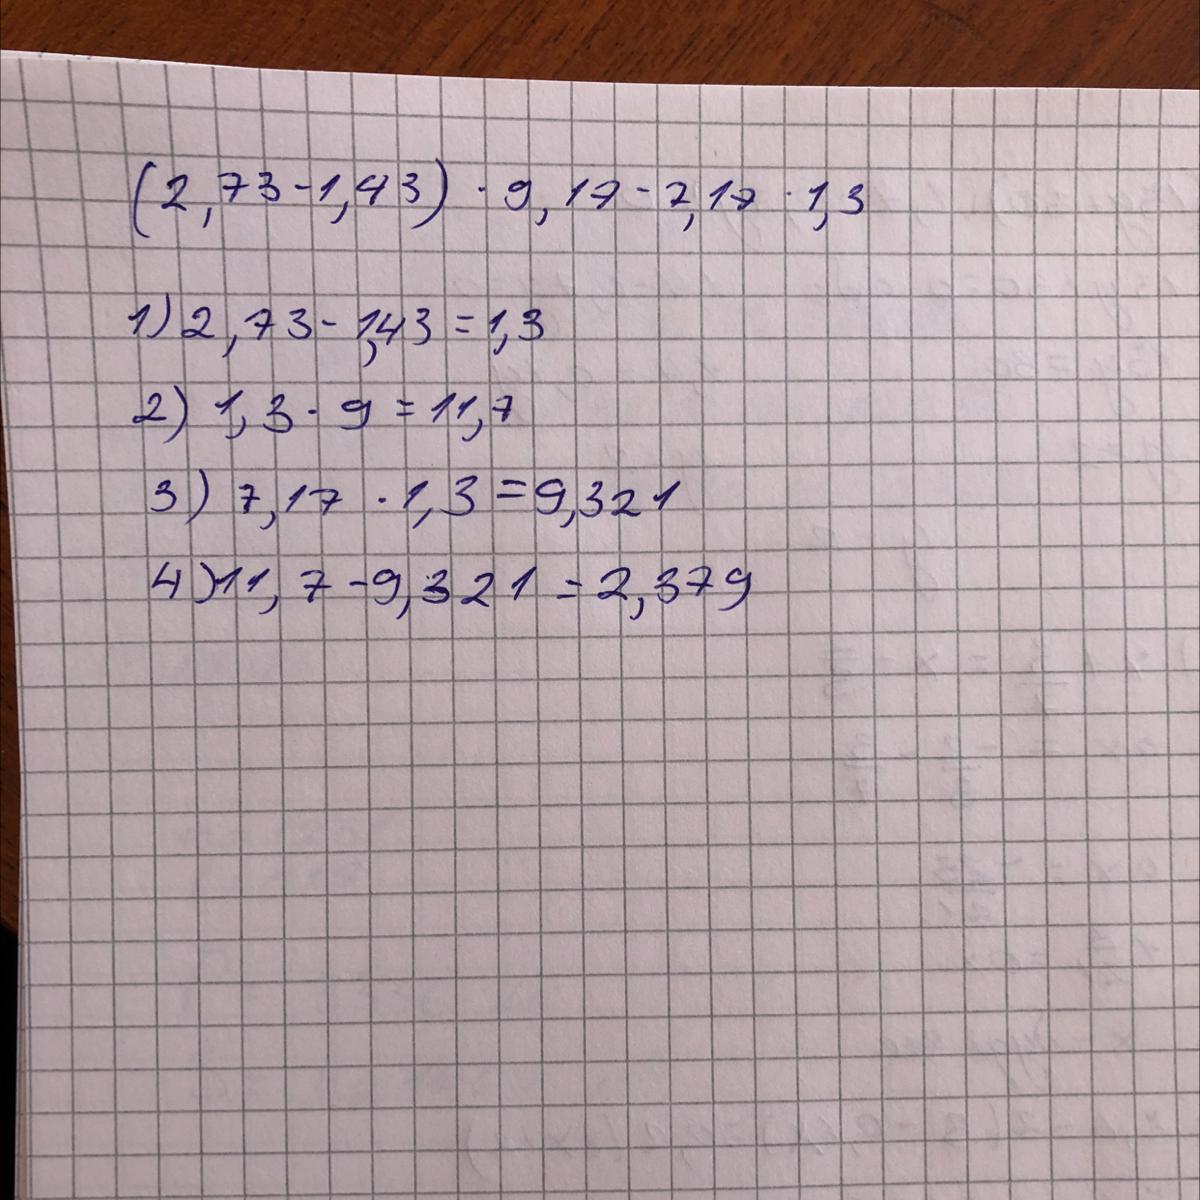 (2,73-1,43) · 9,17-7,17 · 1,3
1) 2,73-1,43=1,3
2) 1,3 · 9 = 11,7
3) 7,17 · 1,3=9,321
4) 11,7-9,321=2,379